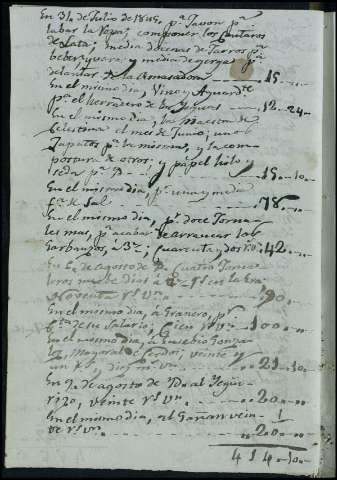 En 31 de Julio de 1845. pa Javon pa
labar la Ropa; componer los Cantaros
de Lata; media docena de Jarros pa
beber agua; y media de gerga pa
delantar de la Amasadora 15
En el mismo dia, Vino y Aguardte
pa el herradero de las Yeguas 12-24
En el mismo dia, la Maestra de
Celestina el mes de Junio; unos
Zapatos pa la misma, y la com-
postura de otros; y papel hilo y
seda pa 15-10
En el mismo dia, pr una y media
fa de Sal 78
En el mismo dia, pr doce Jorna-
les mas, pa acabar de arrancar los
Garbanzos, a 3½; cuarenta y dos rs 42
En 6 de Agosto de Cuatro Jorna-
leros
noventa rs vn 90
En el mismo dia, a Granero, pr
cta de su Salario; Cien rs vn 100
En el mismo dia, a Eusebio Gonza-
lez Mayoral de Cerdos; veinte y
un rs, diez ms 21-10
En 9 de agosto de Yegüe-
rizo, veinte rs vn 20
En el mismo dia, al Gañan vein-
te rs vn 20
414-10